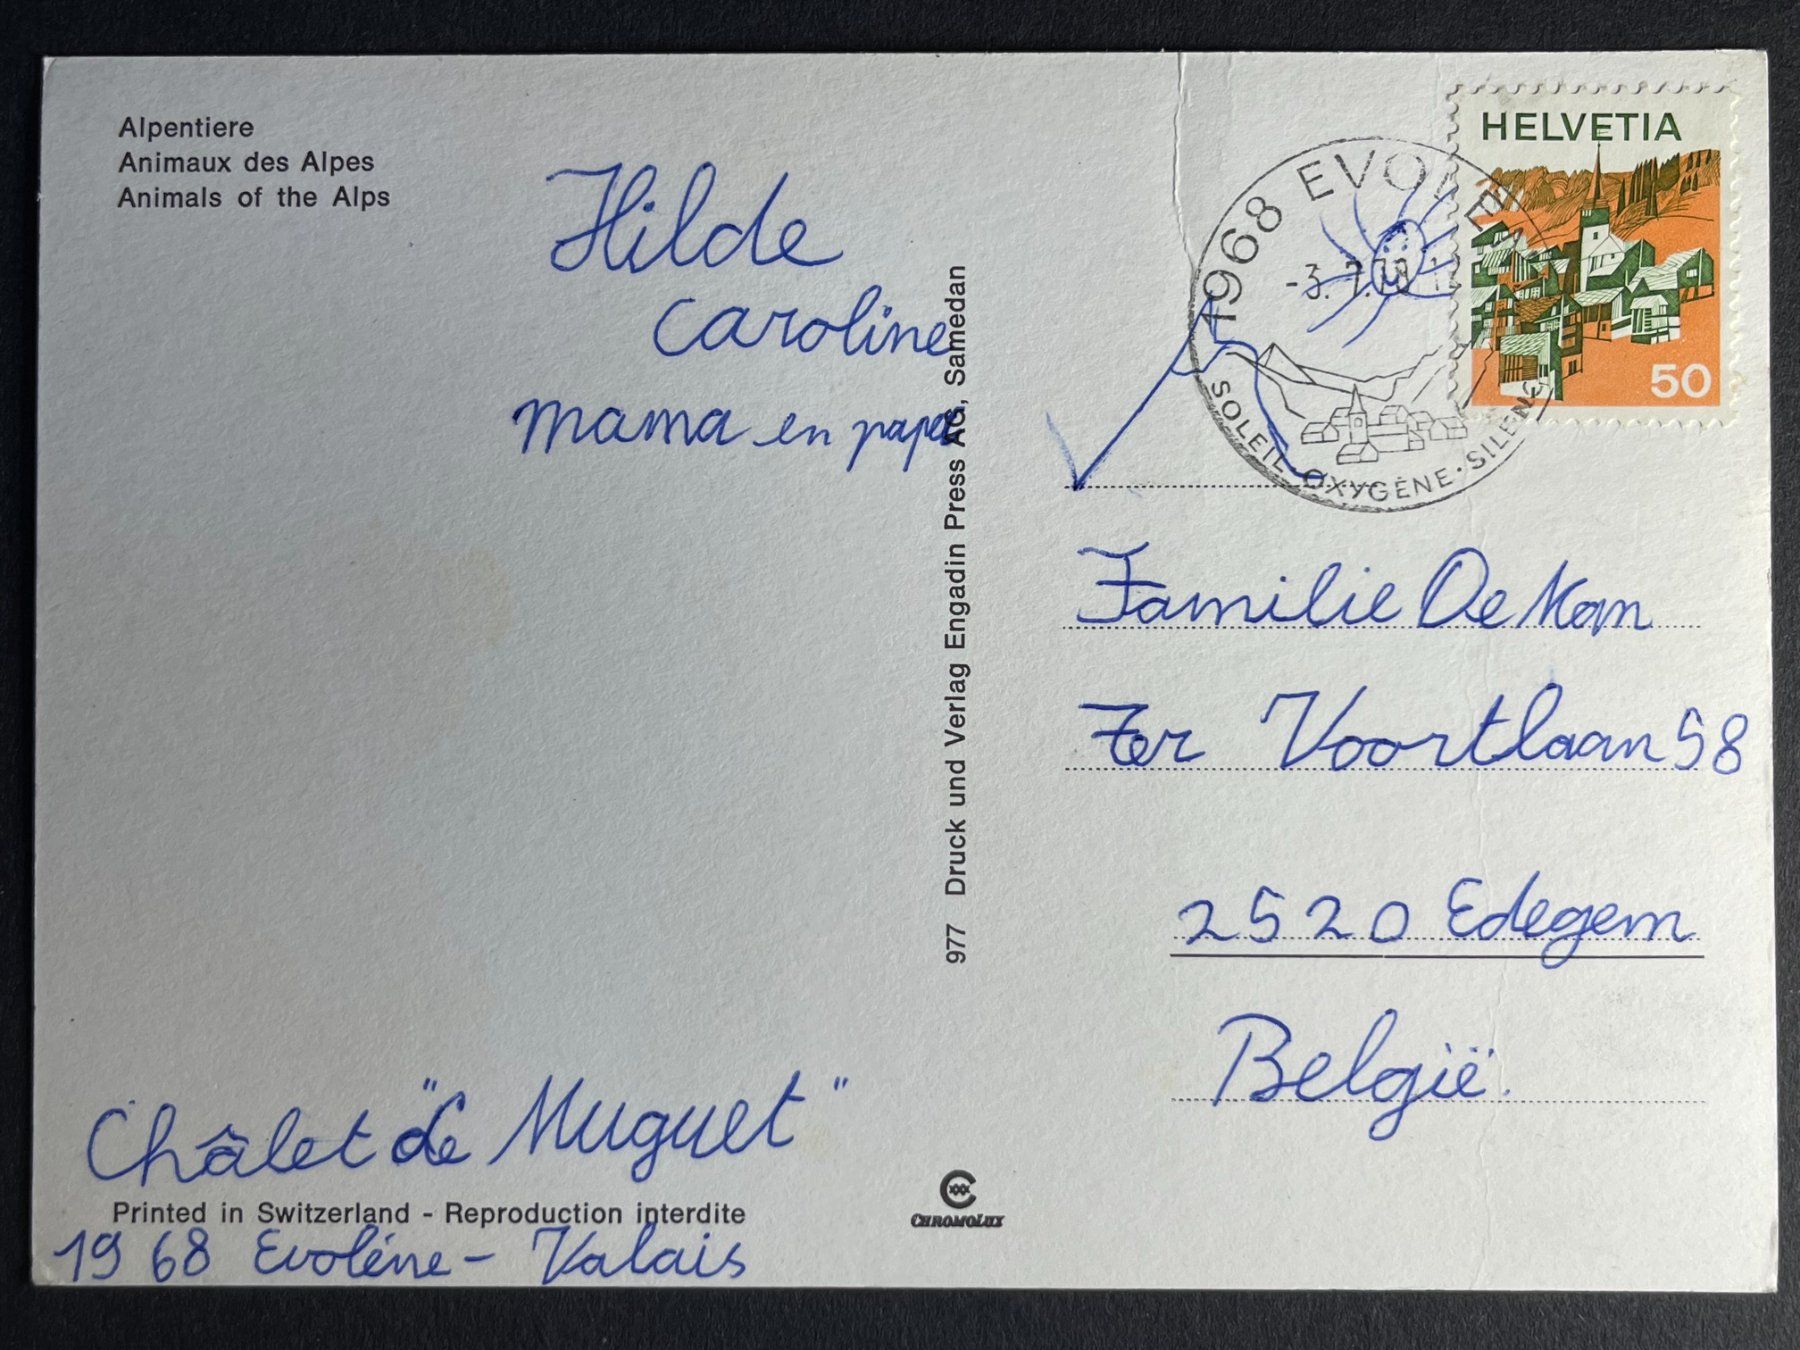 Alpentiere
Animaux des Alpes
Animals of the Alps
Hilde
Caroline
mama en papa
Châlet "de Muguet"
Printed in Switzerland - Reproduction interdite
1968 Evolène - Valais
977 Druck und Verlag Engadin Press AG, Samedan
CHROMOLUX
HELVETIA
50
1968 EVOLÈNE
-3. 7.
SOLEIL · OXYGÈNE · SILENCE
Familie De
Ter Voortlaan 58
2520 Edegem
België.